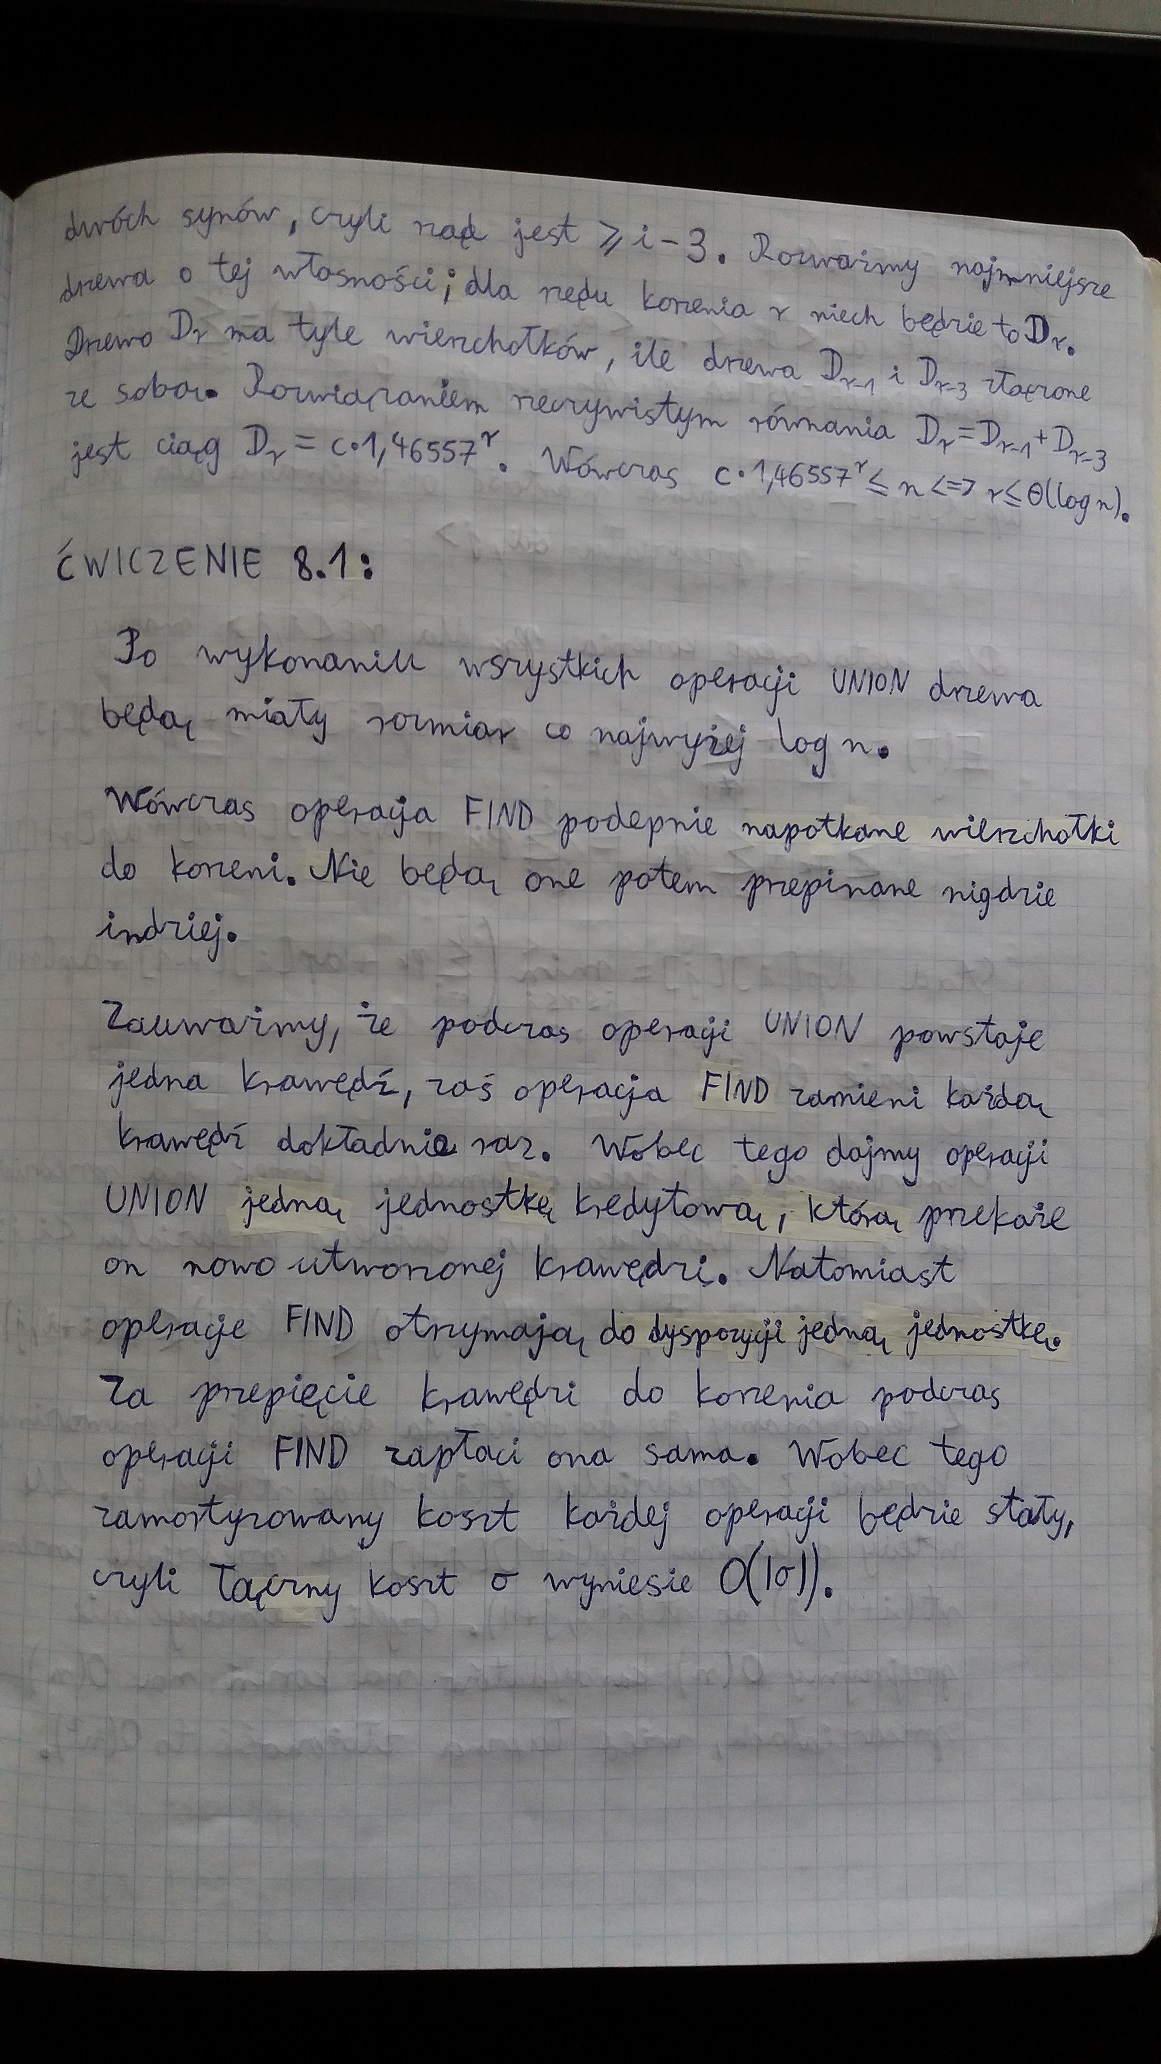 dwóch synów, czyli rząd jest ⩾ i-3. Rozważmy najmniejsze
drzewa o tej własności; dla rzędu korzenia r niech będzie to Dᵣ.
Drzewo Dᵣ ma tyle wierzchołków, ile drzewa Dᵣ₋₁ i Dᵣ₋₃ złączone
ze sobą. Rozwiązaniem rzeczywistym równania Dᵣ=Dᵣ₋₁+Dᵣ₋₃
jest ciąg Dᵣ = c·1,46557ʳ. Wówczas c·1,46557ʳ ≤ n <=> r ≤ Θ(log n).
ĆWICZENIE 8.1:
Po wykonaniu wszystkich operacji UNION drzewa
będą miały rozmiar co najwyżej log n.
Wówczas operacja FIND podepnie napotkane wierzchołki
do korzeni. Nie będą one potem przepinane nigdzie
indziej.
Zauważmy, że podczas operacji UNION powstaje
jedna krawędź, zaś operacja FIND zamieni każdą
krawędź dokładnie raz. Wobec tego dajmy operacji
UNION jedną jednostkę kredytową, którą przekaże
on nowo utworzonej krawędzi. Natomiast
operacje FIND otrzymają do dyspozycji jedną jednostkę.
Za przepięcie krawędzi do korzenia podczas
operacji FIND zapłaci ona sama. Wobec tego
zamortyzowany koszt każdej operacji będzie stały,
czyli łączny koszt σ wyniesie O(|σ|).